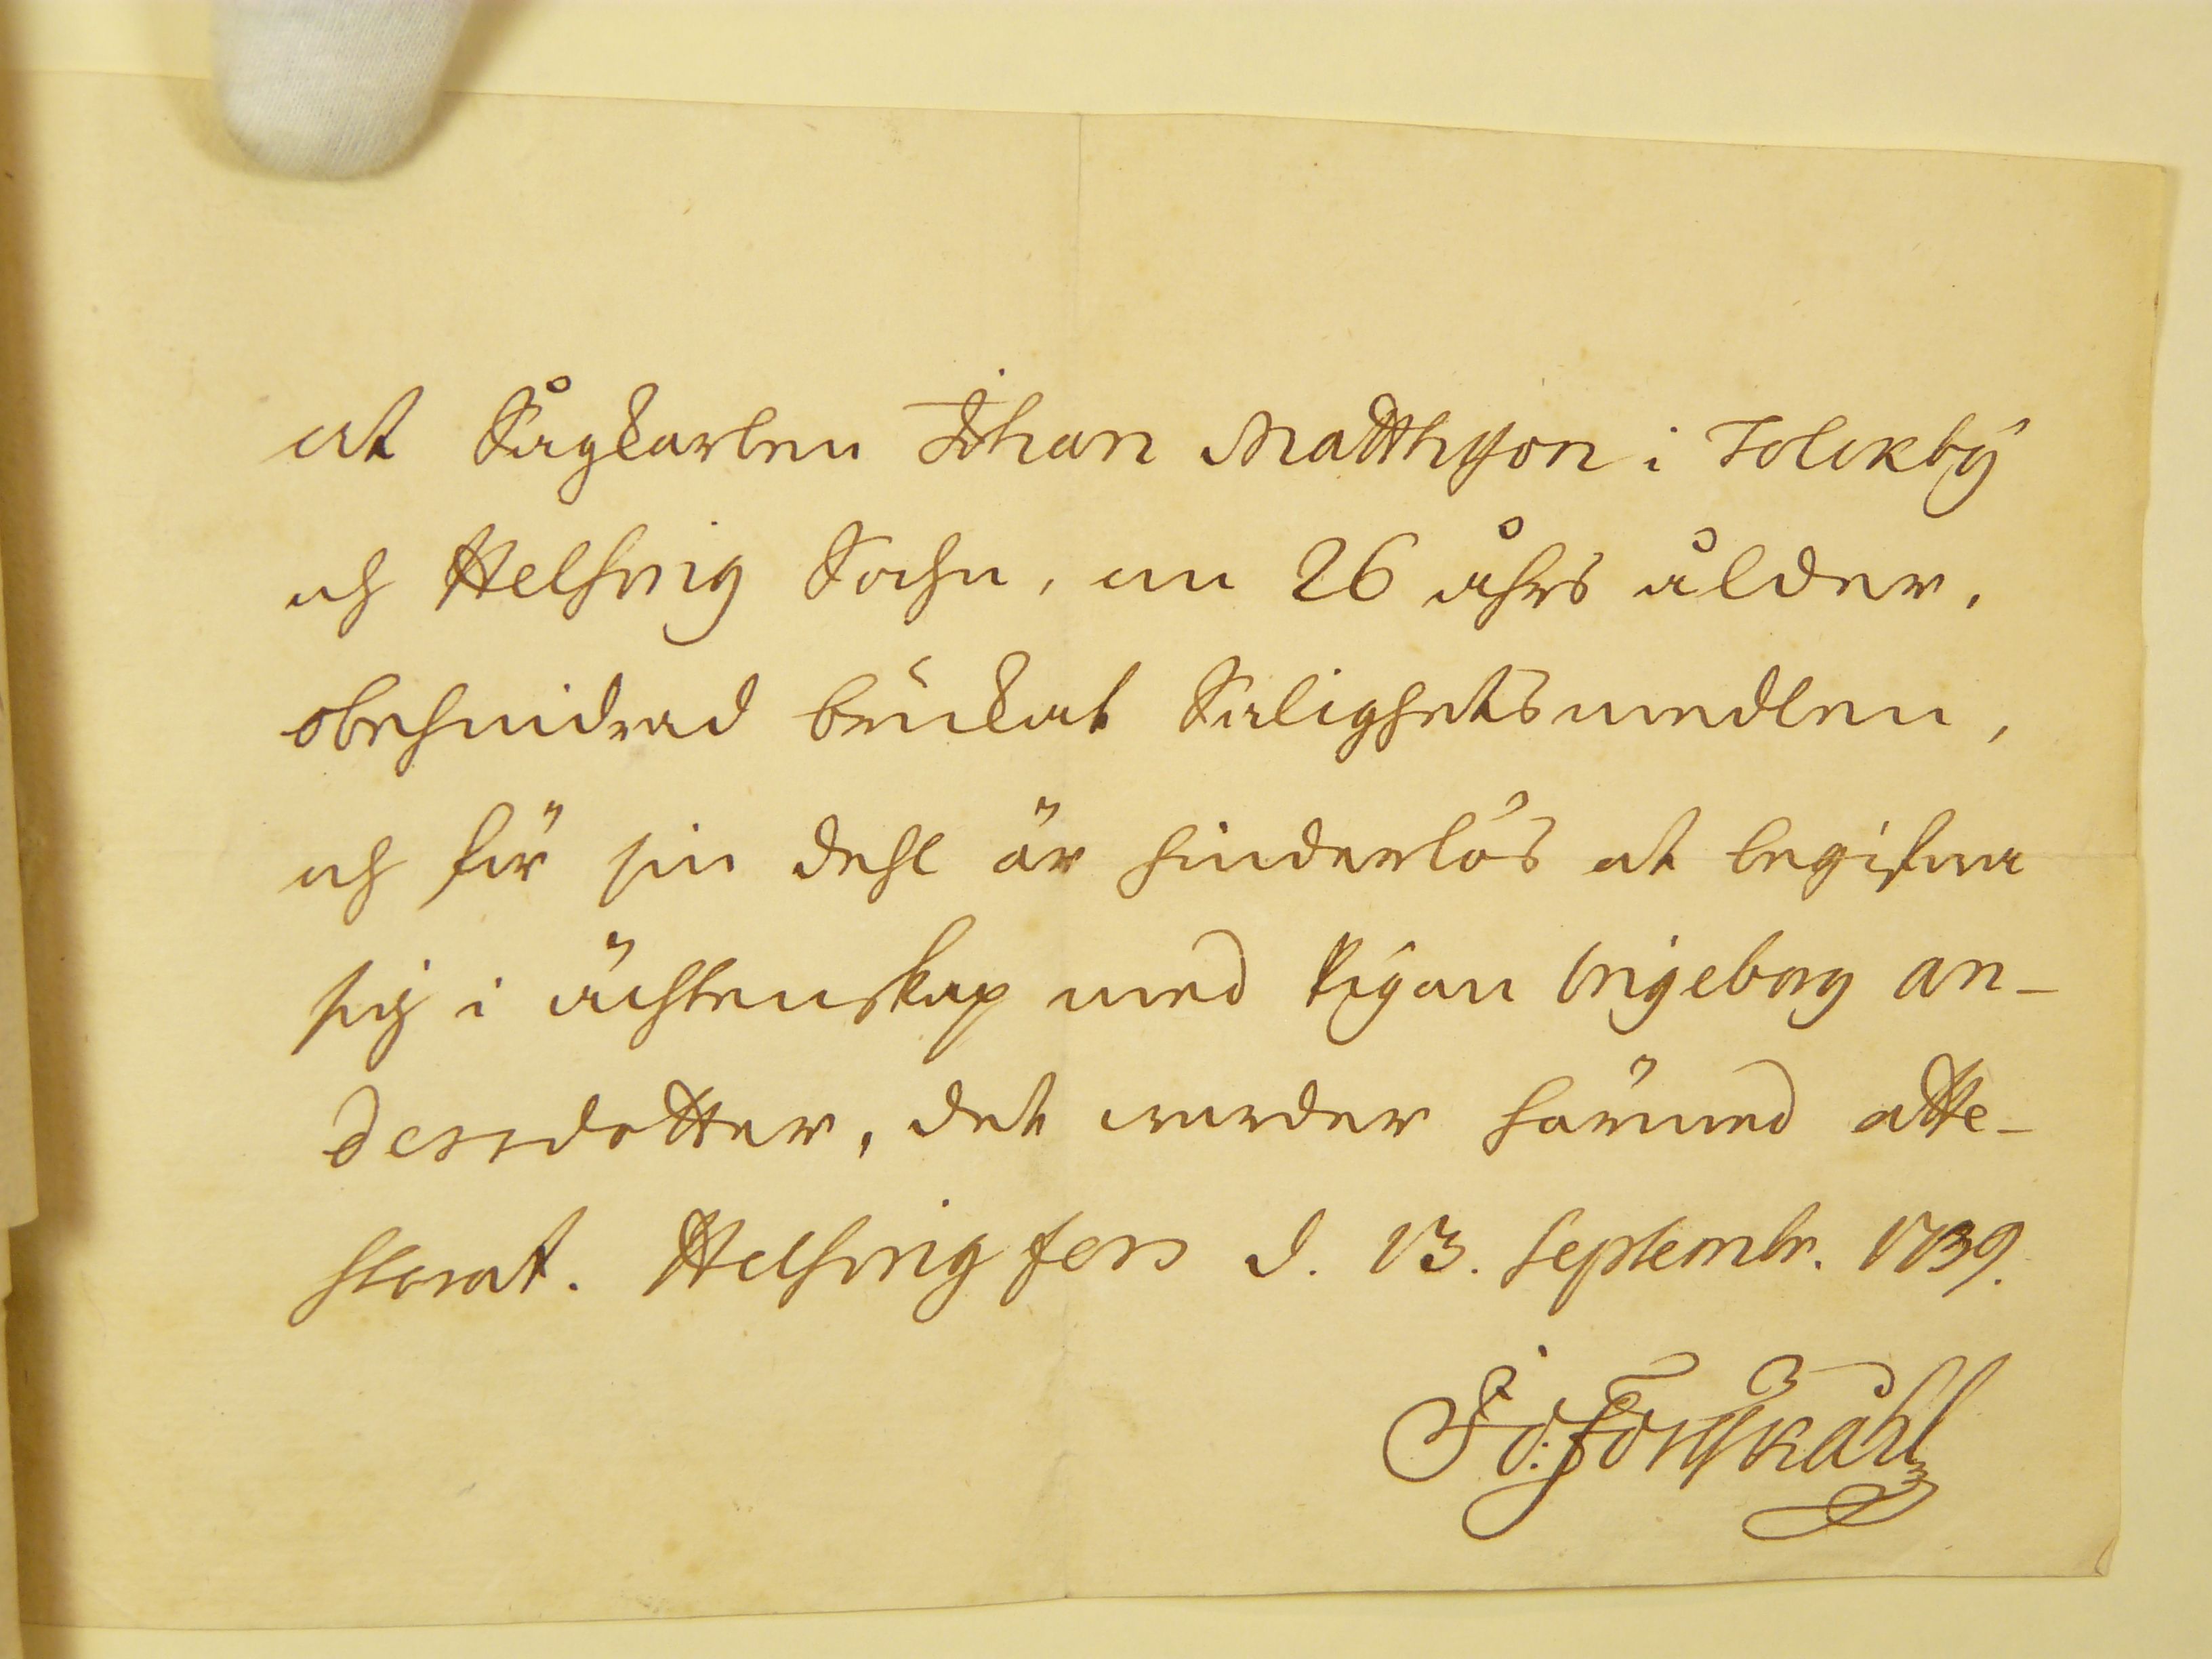 at Sågkarlen Johan Matthsson i Tolckby
och Helsing Sochn, en 26 åhrs ålder,
obehindrad brukat Salighetsmedlen,
och för sin dehl är hinderlös at begifwa
sig i ächtenskap med Pigan Ingeborg An-
dersdotter, det warder härmed atte-
sterat. Helsingfors d. 13. Septembr. 1739.
Jo: Forsskåhl